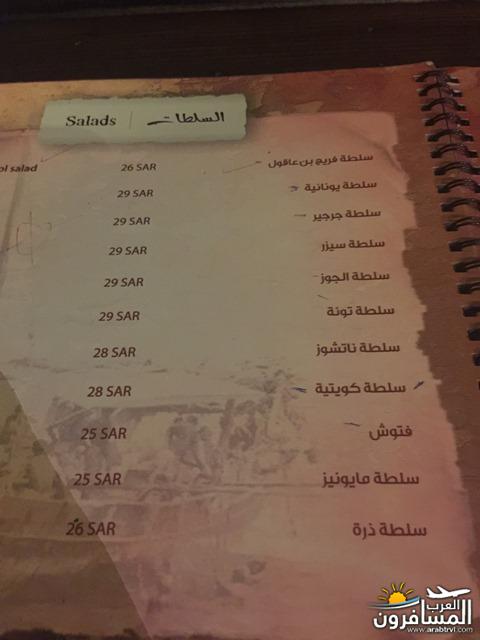 Salads | السلطات
ol salad 26 SAR سلطة فريج بن عاقول
29 SAR سلطة يونانية
29 SAR سلطة جرجير
29 SAR سلطة سيزر
29 SAR سلطة الجوز
29 SAR سلطة تونة
28 SAR سلطة ناتشوز
28 SAR سلطة كويتية
25 SAR فتوش
25 SAR سلطة مايونيز
26 SAR سلطة ذرة
العرب
المسافرون
www.arabtrvl.com